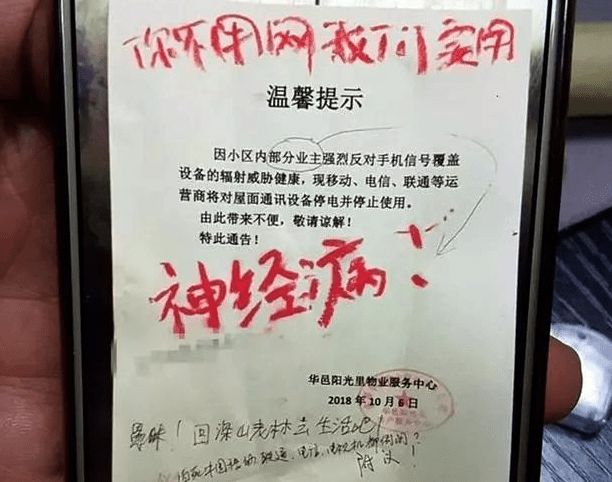 你不用网我们实用
温馨提示
因小区内部分业主强烈反对手机信号覆盖
设备的辐射威胁健康，现移动、电信、联通等运
营商将对屋面通讯设备停电并停止使用。
由此带来不便，敬请谅解！
特此通告！
神经病！
华邑阳光里物业服务中心
2018年10月6日
愚昧！回深山老林去生活吧！
附议！